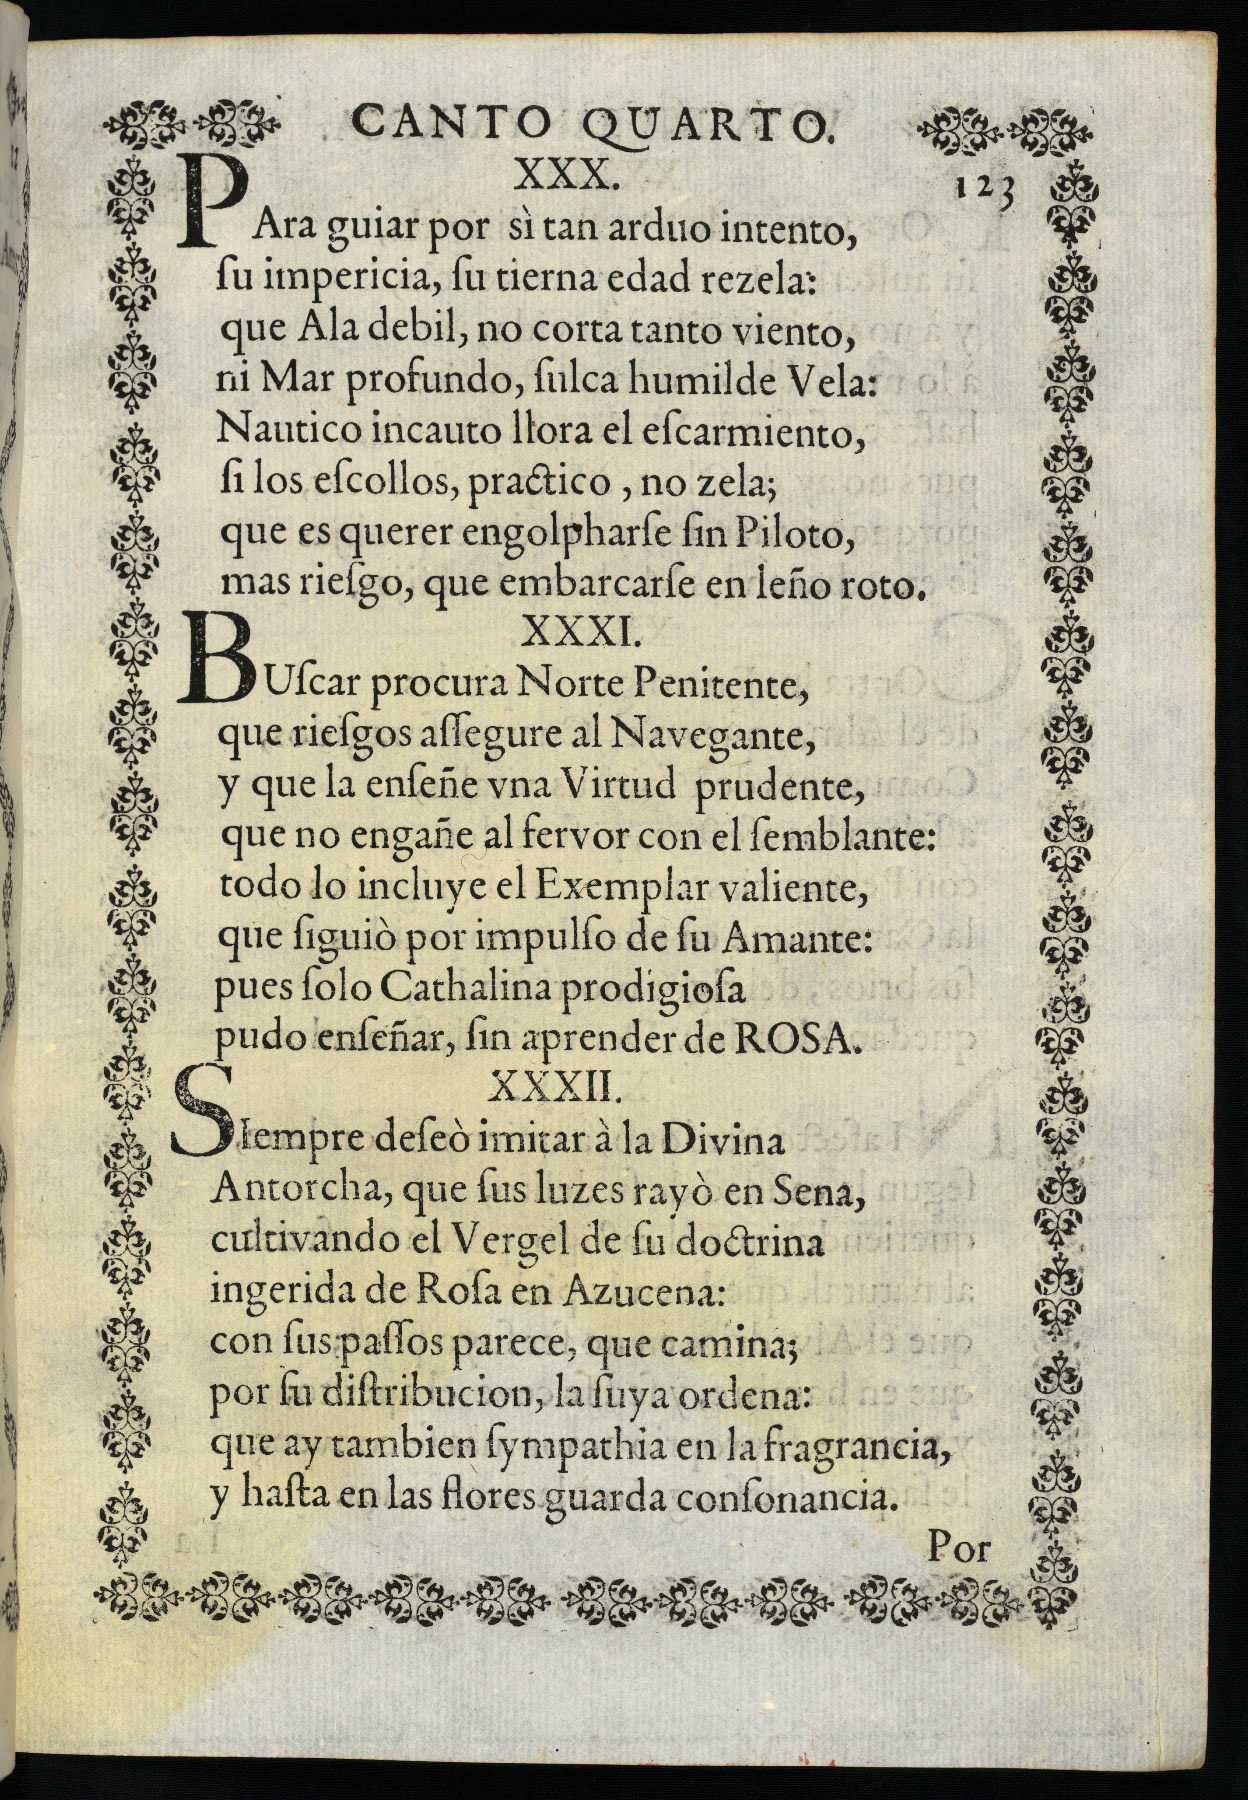 CANTO QUARTO.
XXX.
123
PAra guiar por sì tan arduo intento,
ſu impericia, ſu tierna edad rezela:
que Ala debil, no corta tanto viento,
ni Mar profundo, ſulca humilde Vela:
Nautico incauto llora el eſcarmiento,
ſi los eſcollos, practico , no zela;
que es querer engolpharſe ſin Piloto,
mas rieſgo, que embarcarſe en leño roto.
XXXI.
BUſcar procura Norte Penitente,
que rieſgos aſſegure al Navegante,
y que la enſeñe vna Virtud prudente,
que no engañe al fervor con el ſemblante:
todo lo incluye el Exemplar valiente,
que ſiguiò por impulſo de ſu Amante:
pues ſolo Cathalina prodigioſa
pudo enſeñar, ſin aprender de ROSA.
XXXII.
SIempre deſeò imitar à la Divina
Antorcha, que ſus luzes rayò en Sena,
cultivando el Vergel de ſu doctrina
ingerida de Roſa en Azucena:
con ſus paſſos parece, que camina;
por ſu diſtribucion, la ſuya ordena:
que ay tambien ſympathia en la fragrancia,
y haſta en las flores guarda conſonancia.
Por